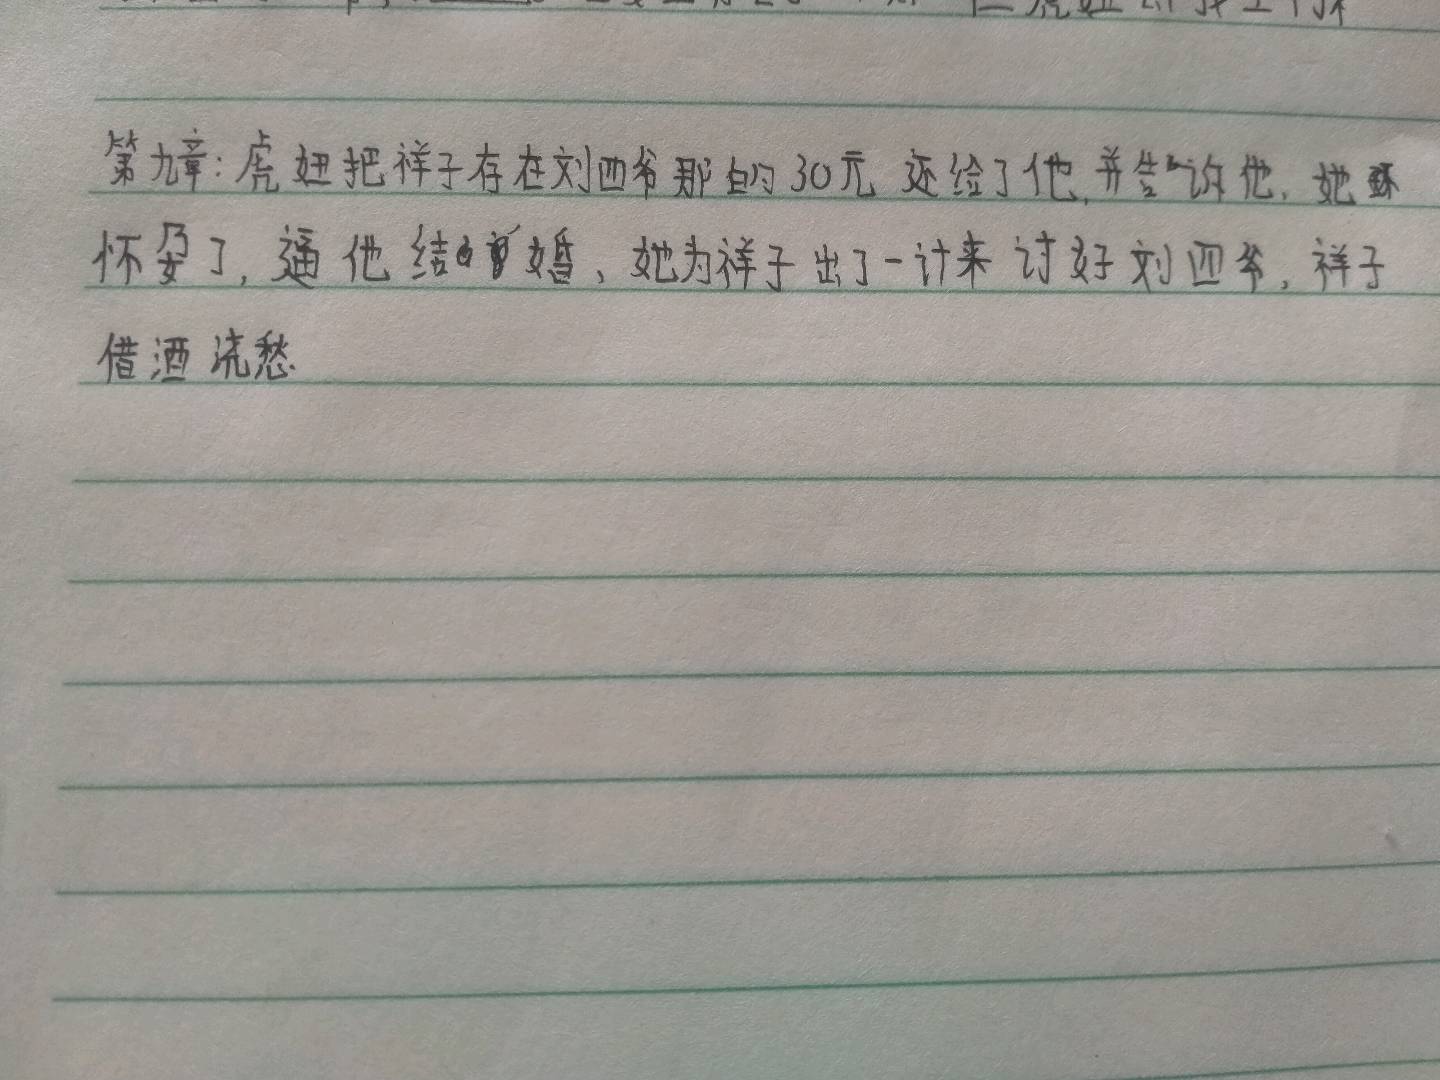 第九章:虎妞把祥子存在刘四爷那的30元还给了他,并告诉他,她
怀孕了,逼他结婚、她为祥子出了一计来讨好刘四爷,祥子
借酒浇愁.